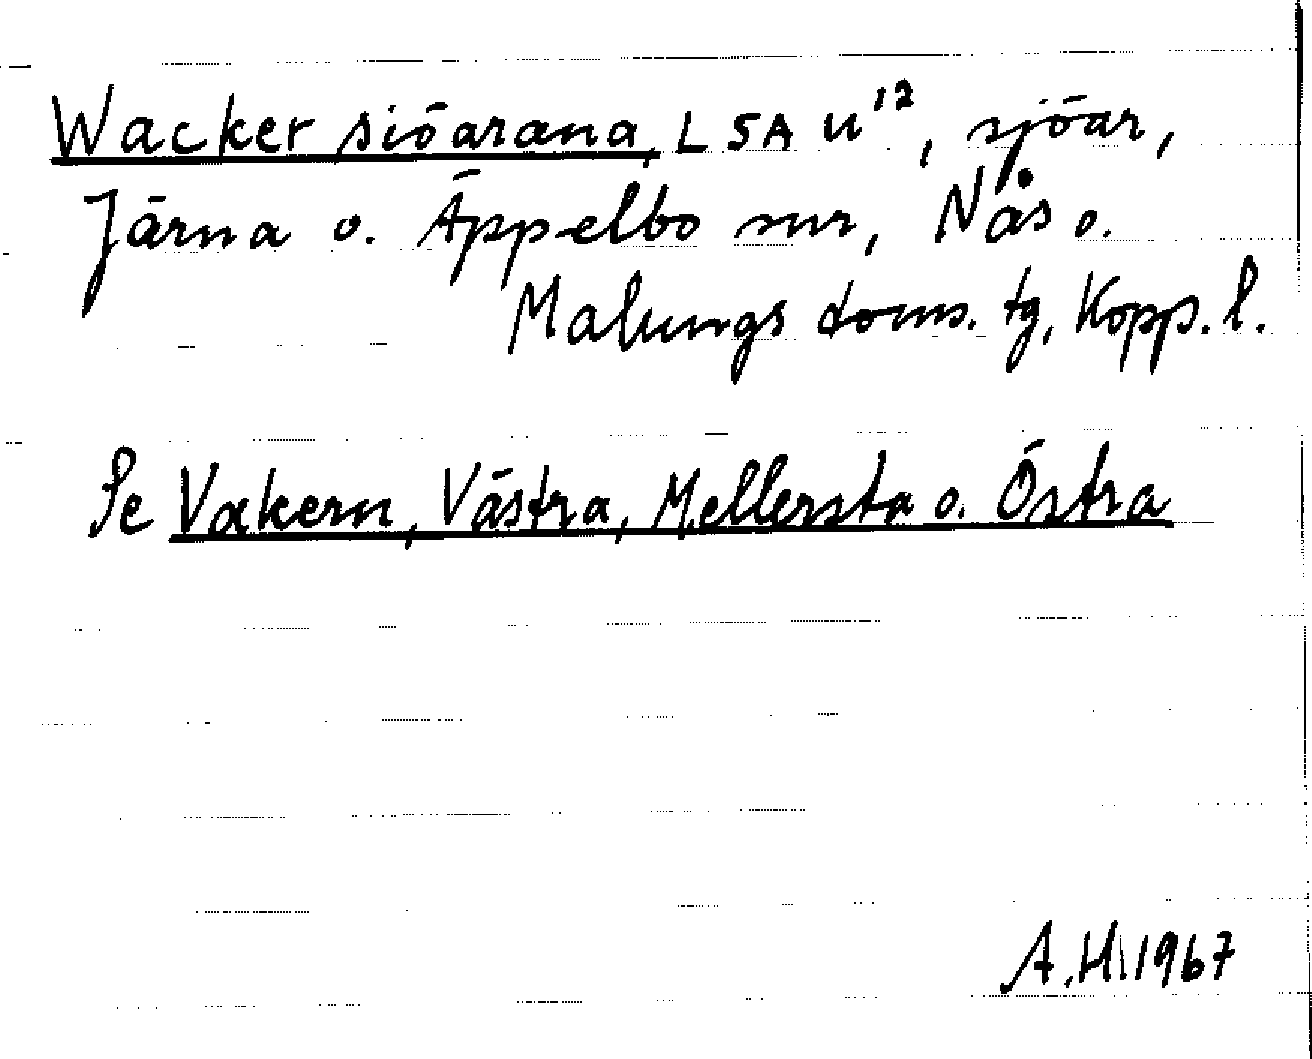 Wacker siöarana, LSA U¹², sjöar,
Järna o. Äppelbo snr, Nås o.
Malungs doms. tg, Kopp. l.
Se Vakern, Västra, Mellersta o. Östra
A.H. 1967